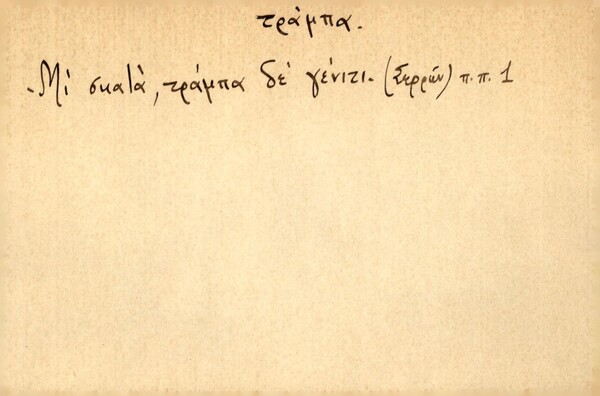 τράμπα.
-Μὶ σκατὰ, τράμπα δὲ γένιτι. (Σερρῶν) π.π. 1